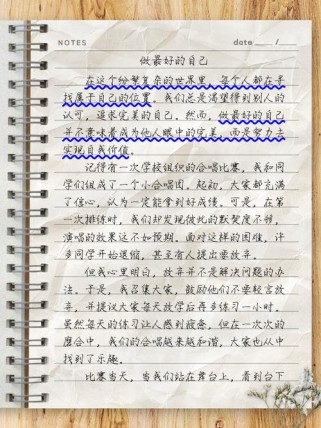 NOTES
date ___ / ___
做最好的自己
在这个纷繁复杂的世界里，每个人都在寻
找属于自己的位置。我们总是渴望得到别人的
认可，追求完美的自己。然而，做最好的自己
并不意味着成为他人眼中的完美，而是努力去
实现自我价值。
记得有一次学校组织的合唱比赛，我和同
学们组成了一个小合唱团。起初，大家都充满
了信心，认为一定能拿到好成绩。可是，在第
一次排练时，我们却发现彼此的默契度不够，
演唱的效果远不如预期。面对这样的困难，许
多同学开始退缩，甚至有人提出要放弃。
但我心里明白，放弃并不是解决问题的办
法。于是，我召集大家，鼓励他们不要轻言放
弃，并提议大家每天放学后再多练习一小时。
虽然每天的练习让人感到疲惫，但在一次次的
磨合中，我们的合唱越来越和谐，大家也从中
找到了乐趣。
比赛当天，当我们站在舞台上，看到台下